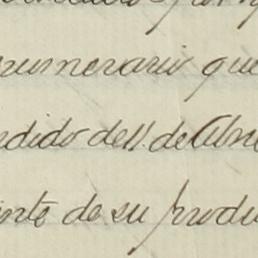 numerario que
ndido del 1. de Abri
inte de su produ